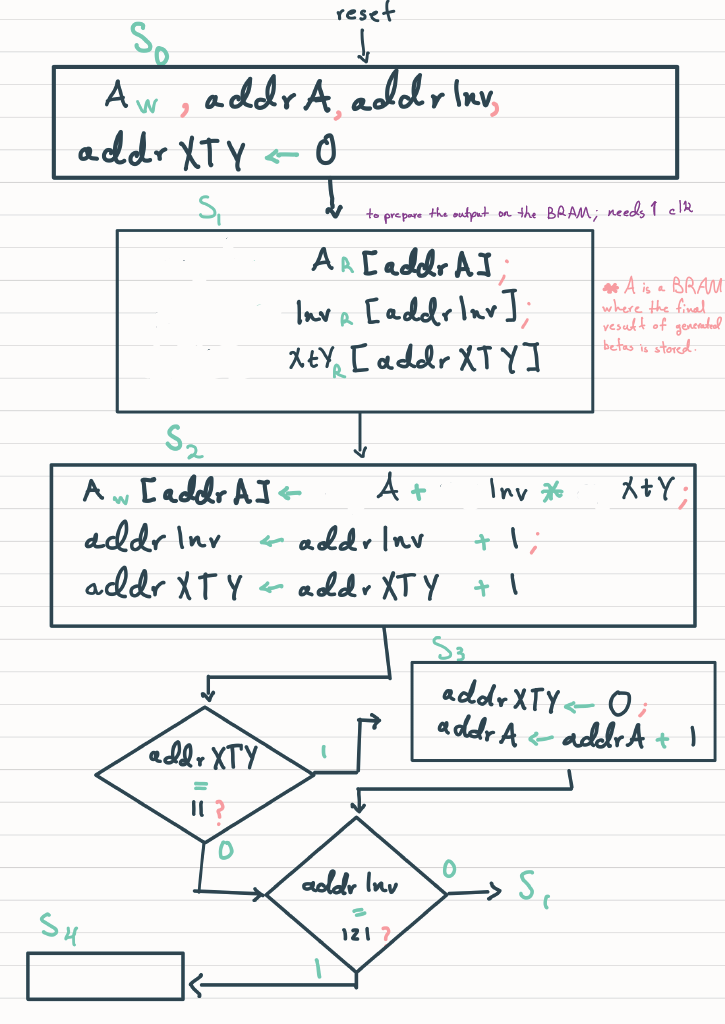 reset
S0
Aw, addrA, addrInv,
addr XTY ← 0
S1
to prepare the output on the BRAM; needs 1 clk
A R [addrA];
Inv R [addrInv];
XtY R [addr XTY]
* A is a BRAM
where the final
result of generated
betas is stored.
S2
A w [addrA] ← A + Inv * XtY;
addrInv ← addrInv + 1;
addr XTY ← addr XTY + 1
S3
addr XTY ← 0;
addrA ← addrA + 1
addr XTY
=
11 ?
1
0
addrInv
=
121 ?
0
S1
1
S4